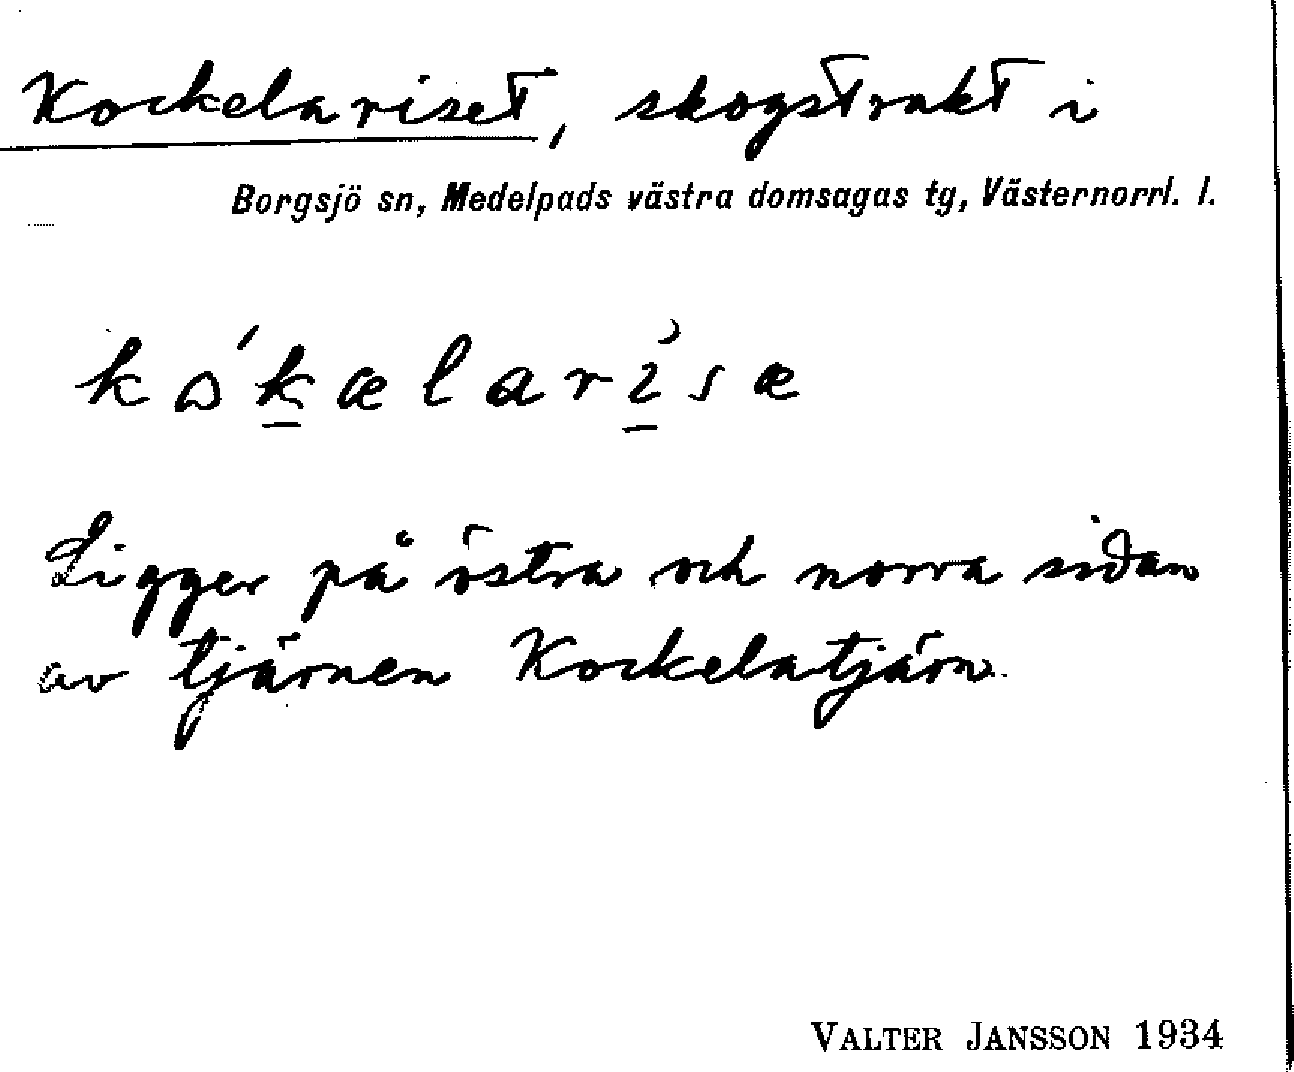 Kockelariset, skogstrakt i
Borgsjö sn, Medelpads västra domsagas tg, Västernorrl. l.
kɷ́k̲ælari̲sæ
Ligger på östra och norra sidan
av tjärnen Kockelatjärn.
VALTER JANSSON 1934